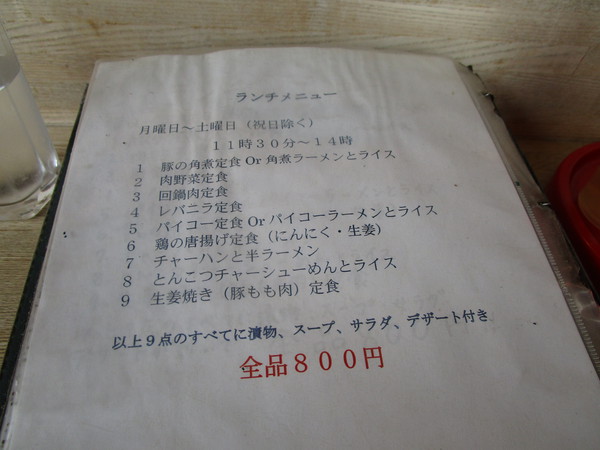 ランチメニュー
月曜日～土曜日（祝日除く）
１１時３０分～１４時
１ 豚の角煮定食 Or 角煮ラーメンとライス
２ 肉野菜定食
３ 回鍋肉定食
４ レバニラ定食
５ パイコー定食 Or パイコーラーメンとライス
６ 鶏の唐揚げ定食（にんにく・生姜）
７ チャーハンと半ラーメン
８ とんこつチャーシューめんとライス
９ 生姜焼き（豚もも肉）定食
以上９点のすべてに漬物、スープ、サラダ、デザート付き
全品８００円